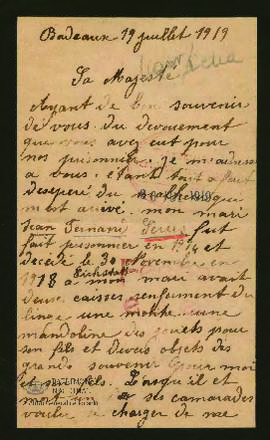 Bordeaux 19 juillet 1919
Sa Majesté
Ayant de bon souvenir
de vous du devouement
que vous avez eut pour
nos prisonniers je m'adresse
a vous étant tout a fait
desesperé du
m'est arrivé mon mari
Jean Fernand fut
fait prisonnier en 1914 et
décédé le 30 Novembre en
1918 a mon mari avait
deux caisses renfermant du
linge une montre une
mandoline des jouets pour
son fils et divers objets des
grands souvenir pour moi
et fils. Lorsqu'il et
mort un de ses camarades
voulu se charger de me
PATRIMONIO
NACIONAL